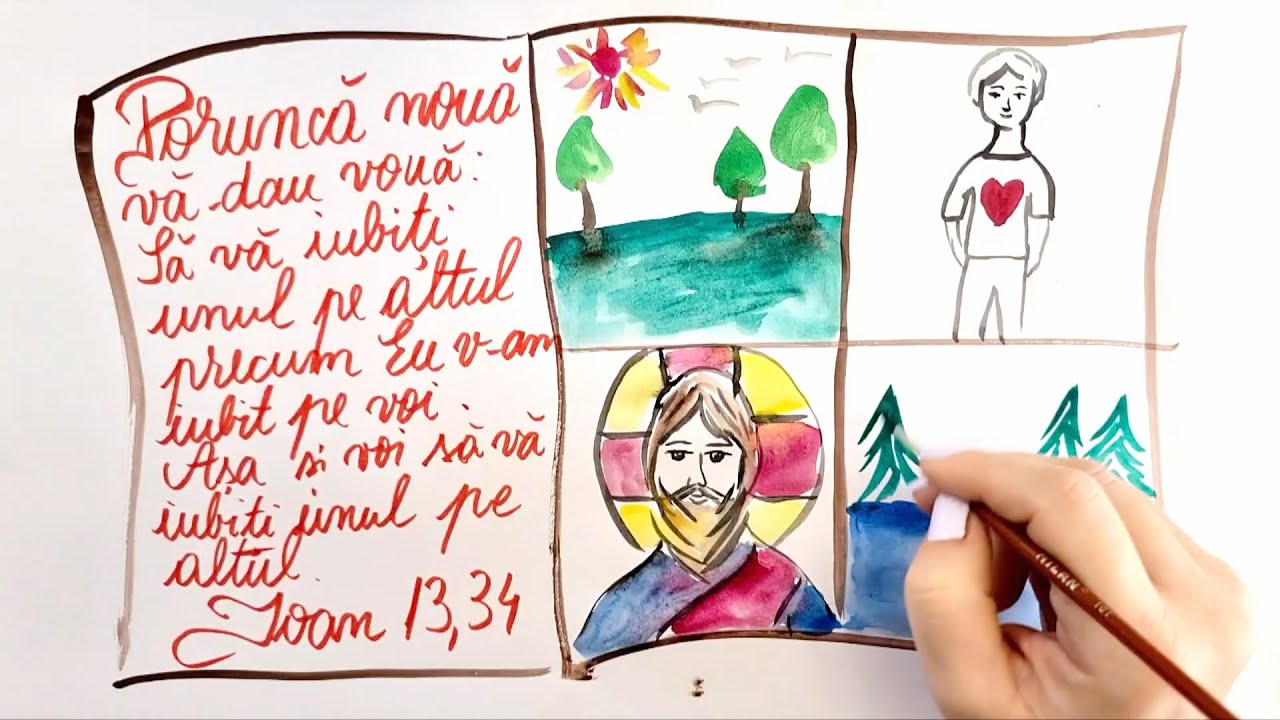 Poruncă nouă
vă dau vouă:
Să vă iubiți
unul pe altul
precum Eu v-am
iubit pe voi.
Așa și voi să vă
iubiți unul pe
altul.
Ioan 13,34
MILAN